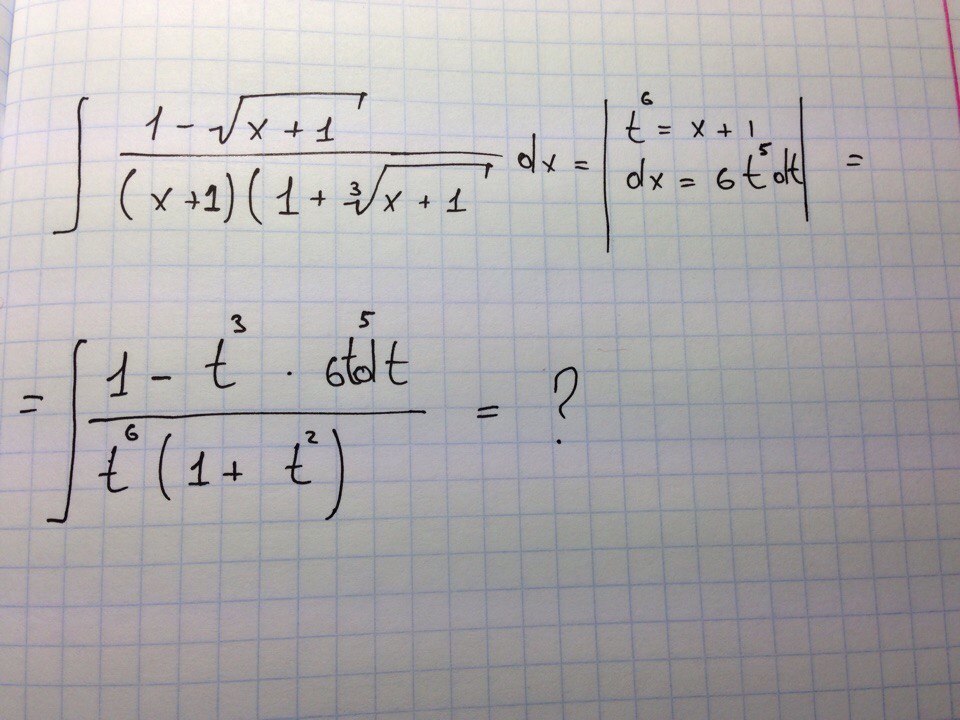 ∫ (1 - √(x + 1)) / ((x + 1)(1 + ∛(x + 1)) dx = | t⁶ = x + 1
dx = 6t⁵dt | =
= ∫ (1 - t³ · 6t⁵dt) / (t⁶(1 + t²)) = ?